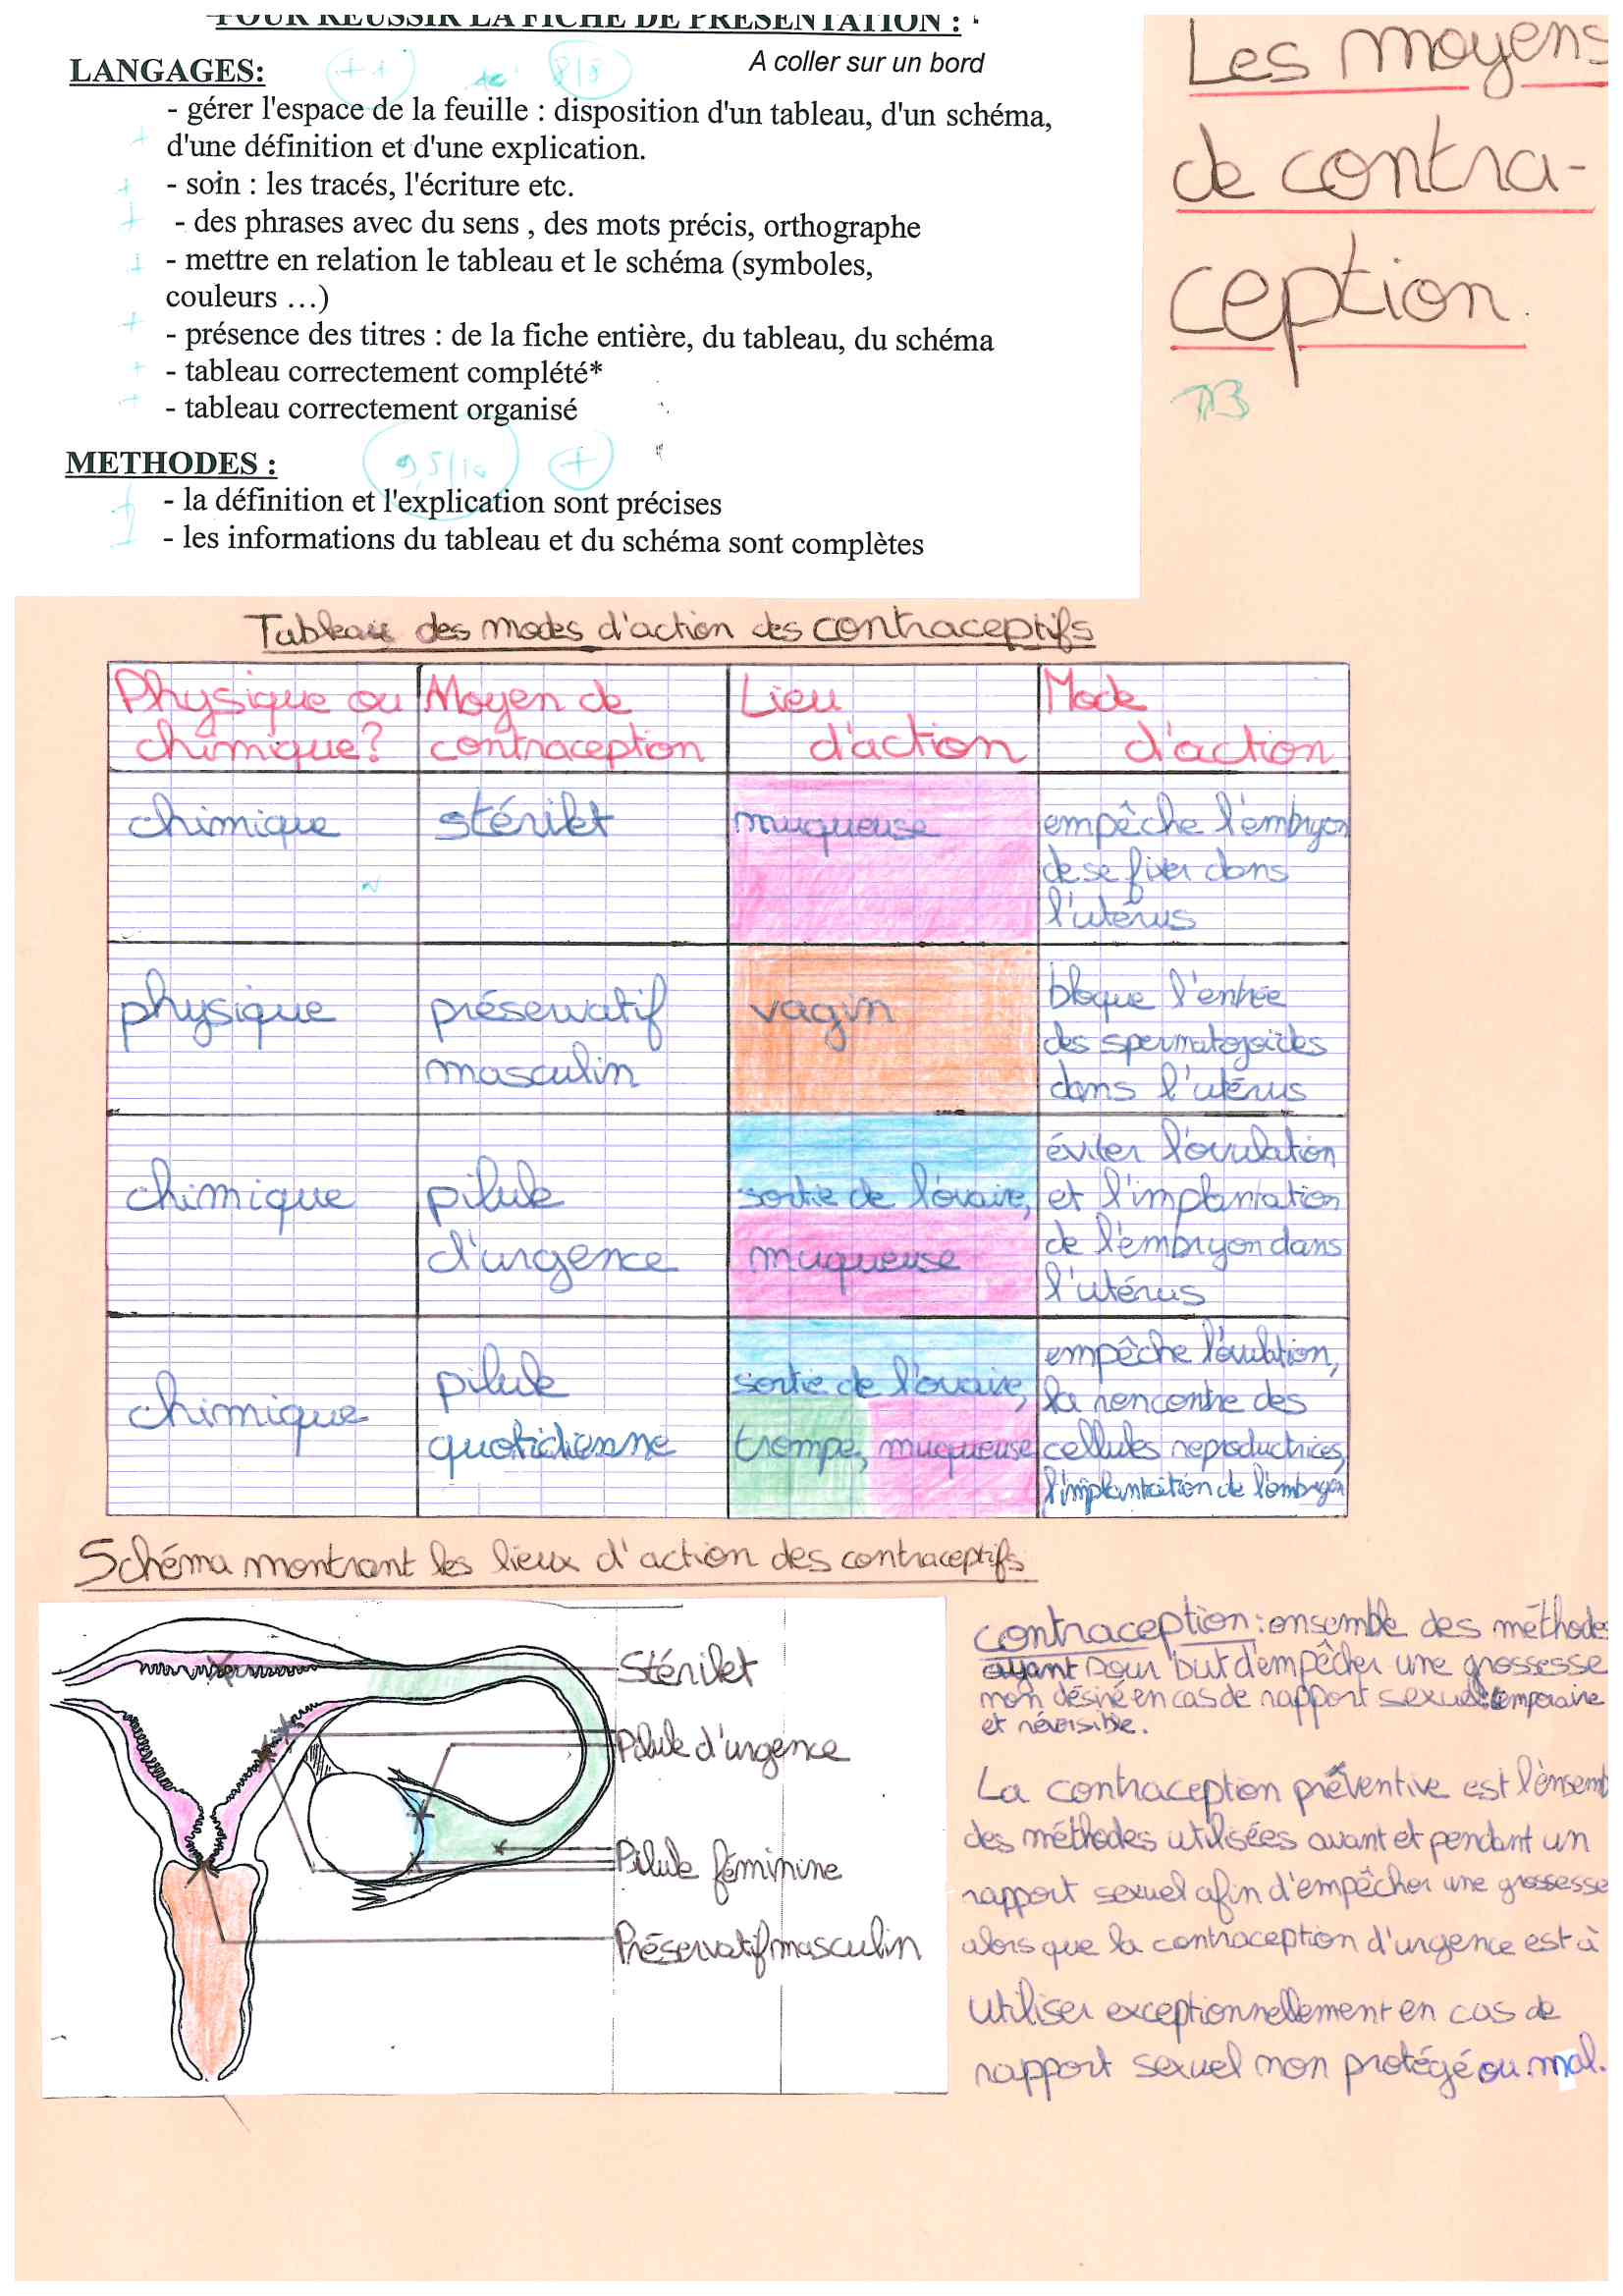 POUR REUSSIR LA FICHE DE PRESENTATION :
A coller sur un bord
LANGAGES:
++
8/8
- gérer l'espace de la feuille : disposition d'un tableau, d'un schéma,
d'une définition et d'une explication.
- soin : les tracés, l'écriture etc.
- des phrases avec du sens , des mots précis, orthographe
- mettre en relation le tableau et le schéma (symboles,
couleurs …)
- présence des titres : de la fiche entière, du tableau, du schéma
- tableau correctement complété*
- tableau correctement organisé
METHODES :
9,5/10
+
- la définition et l'explication sont précises
- les informations du tableau et du schéma sont complètes
Les moyens
de contra-
ception.
TB
Tableau des modes d'action des contraceptifs
Physique ou chimique? Moyen de contraception Lieu d'action Mode d'action
chimique stérilet muqueuse empêche l'embryon
de se fixer dans
l'utérus
physique préservatif masculin vagin bloque l'entrée
des spermatozoïdes
dans l'utérus
chimique pilule d'urgence sortie de l'ovaire, muqueuse éviter l'ovulation
et l'implantation
de l'embryon dans
l'utérus
chimique pilule quotidienne sortie de l'ovaire, trompe, muqueuse empêche l'ovulation,
la rencontre des
cellules reproductrices,
l'implantation de l'embryon
Schéma montrant les lieux d'action des contraceptifs
Stérilet
Pilule d'urgence
Pilule féminine
Préservatif masculin
contraception : ensemble des méthodes
ayant pour but d'empêcher une grossesse
non désiré en cas de rapport sexuel temporaire
et réversible.
La contraception préventive est l'ensemb
des méthodes utilisées avant et pendant un
rapport sexuel afin d'empêcher une grossesse
alors que la contraception d'urgence est à
utiliser exceptionnellement en cas de
rapport sexuel non protégé ou mal.